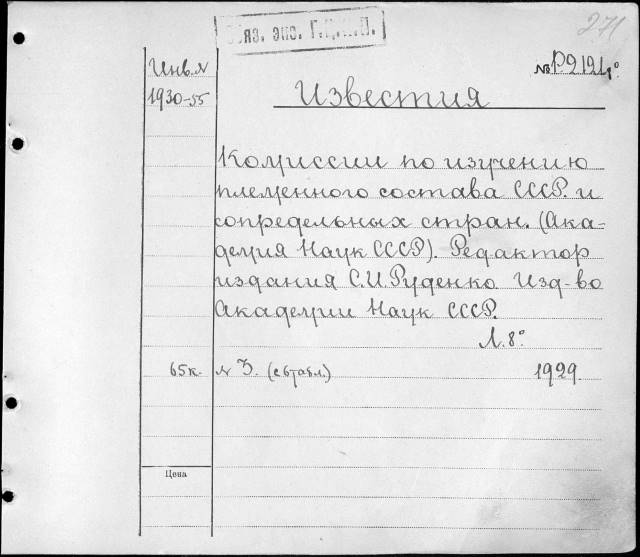 271
Обяз. экз. Г.Ц.К.П.
Инв. №
№ Р2 121 8°
1930-55
Известия
Комиссии по изучению
племенного состава СССР. и
сопредельных стран. (Ака-
демия Наук СССР). Редактор
издания С.И. Руденко. Изд-во
Академии Наук СССР.
Л. 8°
65 к. № 3. (с 6 табл.) 1929.
Цена